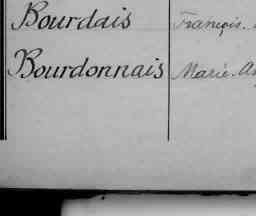 Bourdais François.
Bourdonnais Marie.